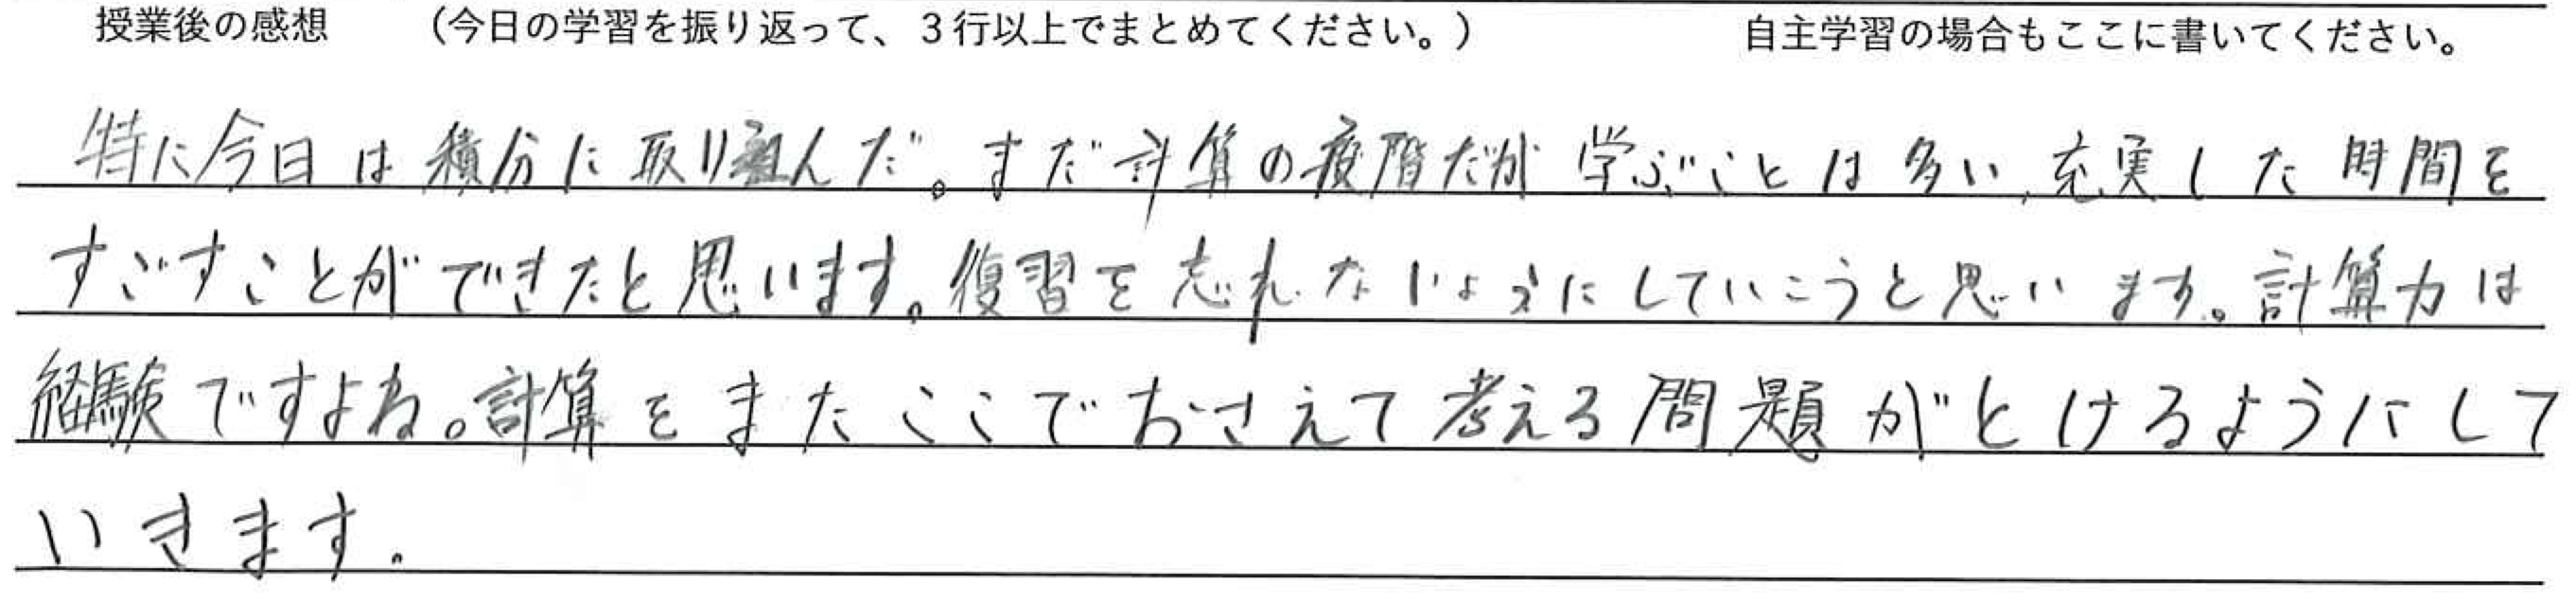 授業後の感想 (今日の学習を振り返って、3行以上でまとめてください。) 自主学習の場合もここに書いてください。
特に今日は積分に取り組んだ。まだ計算の段階だが学ぶことは多い、充実した時間を
すごすことができたと思います。復習を忘れないようにしていこうと思います。計算力は
経験ですよね。計算をまたここでおさえて考える問題がとけるようにして
いきます。